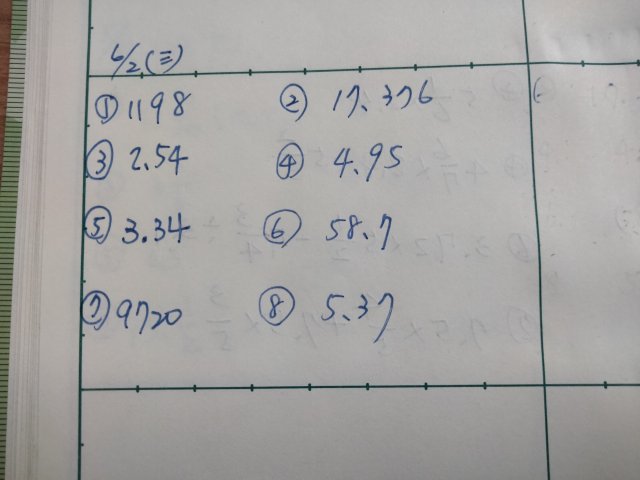 6/2(三)
① 1198 ② 17.376
③ 2.54 ④ 4.95
⑤ 3.34 ⑥ 58.7
⑦ 9720 ⑧ 5.37